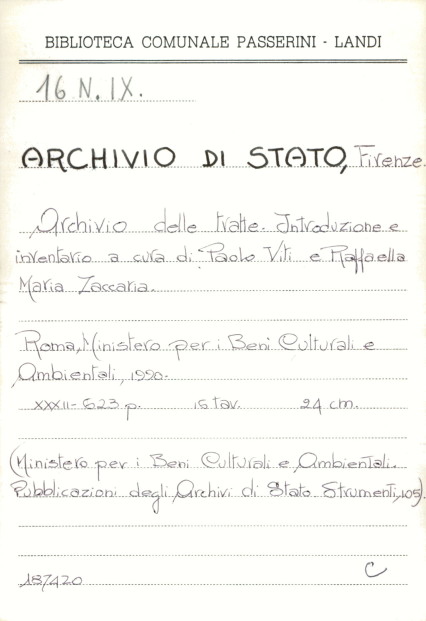 BIBLIOTECA COMUNALE PASSERINI - LANDI
16 N. IX.
ARCHIVIO DI STATO, Firenze.
Archivio delle tratte. Introduzione e
inventario a cura di Paolo Viti e Raffaella
Maria Zaccaria.
Roma, Ministero per i Beni Culturali e
Ambientali, 1990.
XXXII-623 p. 16 tav. 24 cm.
(Ministero per i Beni Culturali e Ambientali.
Pubblicazioni degli Archivi di Stato. Strumenti, 105).
187420 C